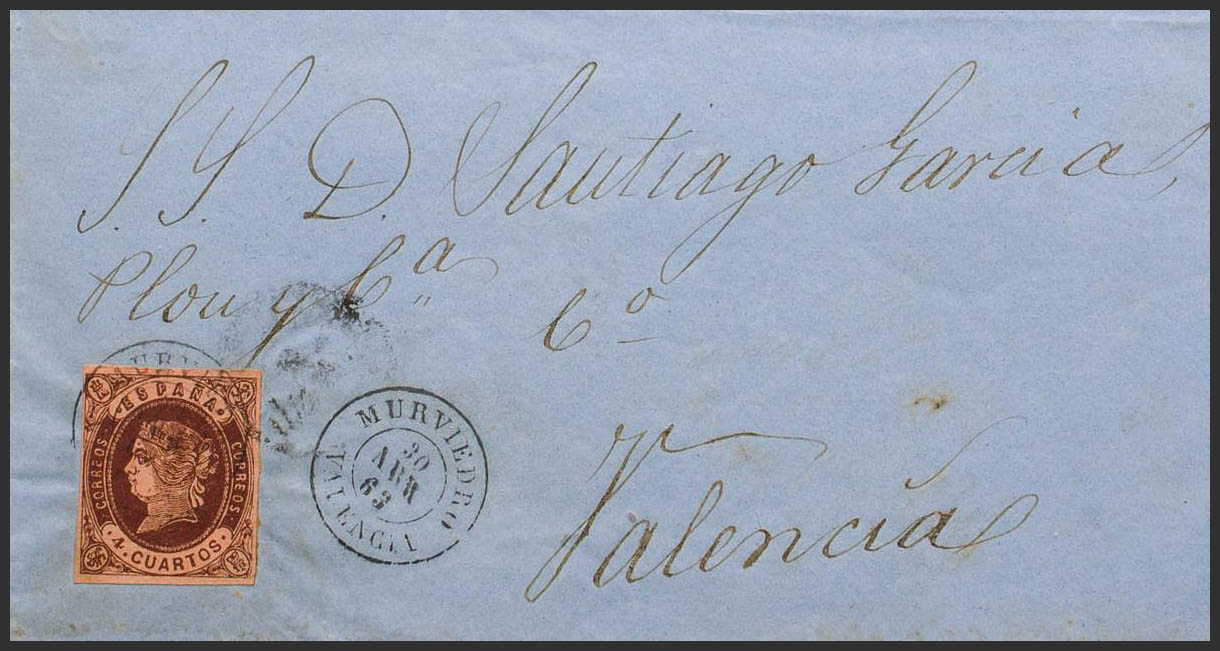 S S. D. Santiago Garcia,
Plou y Cª 6º
Valencia
ESPAÑA
CORREOS
CORREOS
4. CUARTOS.
MURVIEDRO
30
ABR
63
VALENCIA